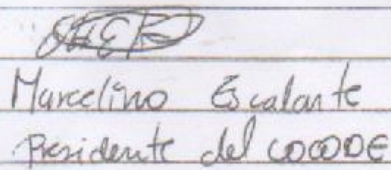 Marcelino Escalante
Presidente del COCODE